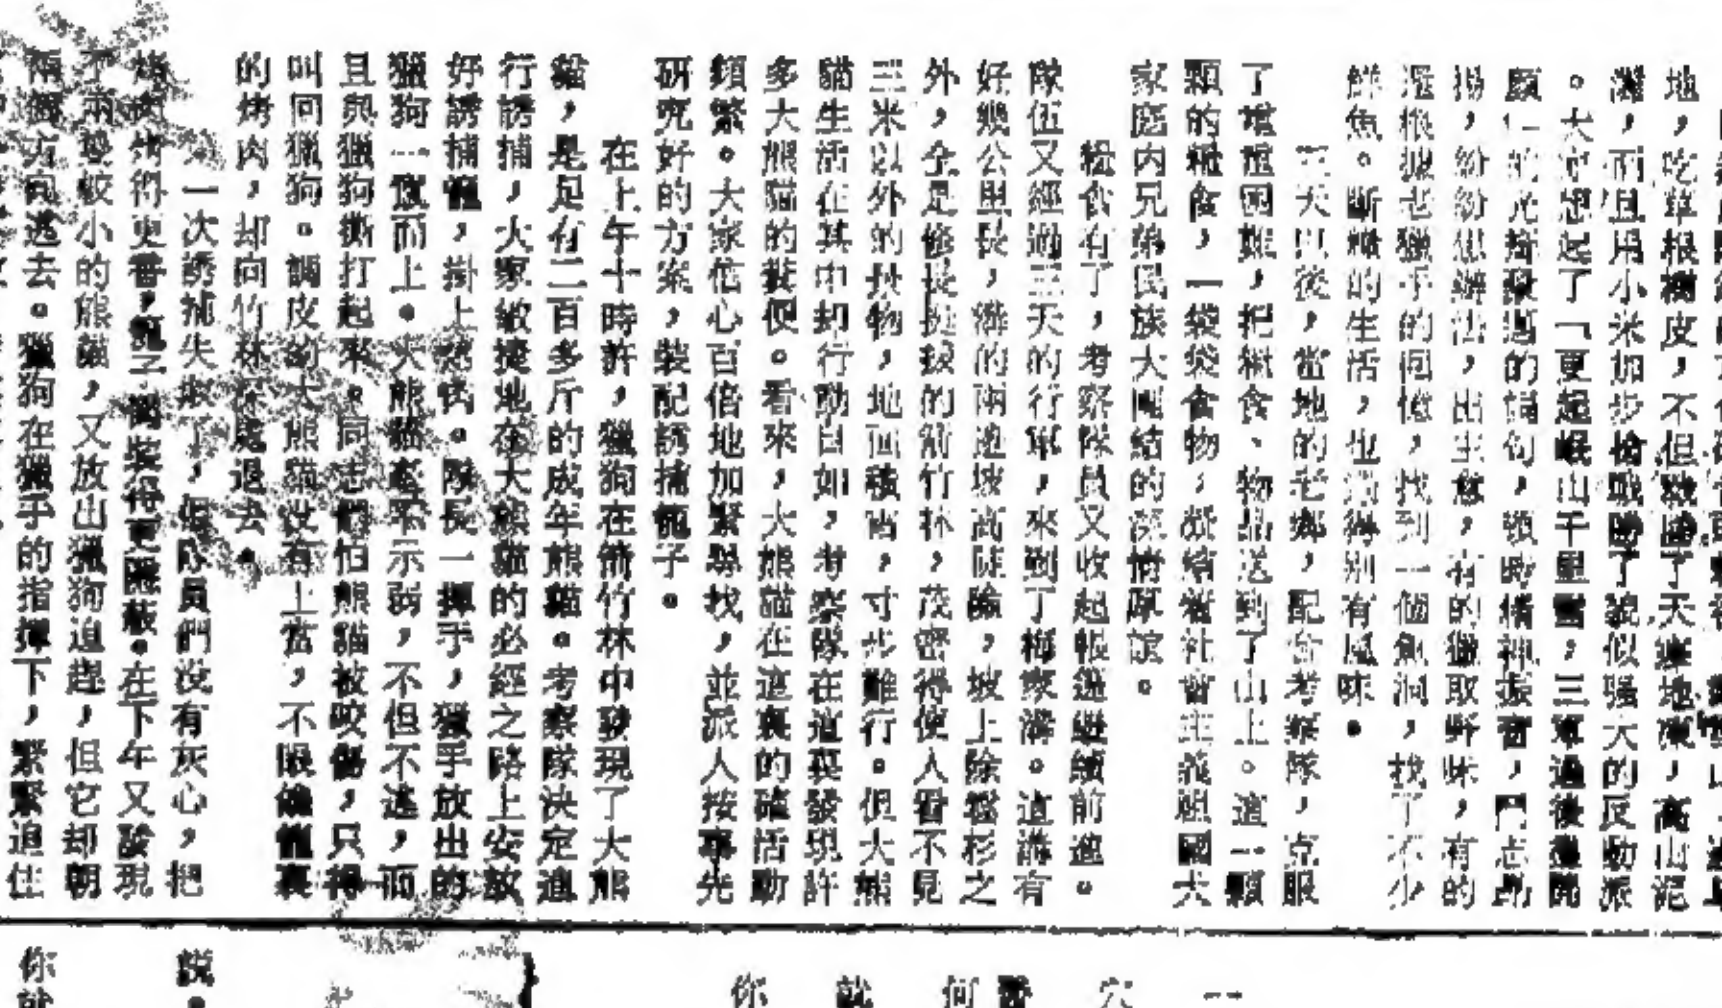 地，吃草根樹皮，不但戰勝了天寒地凍，高山泥
灘，而且用小米加步槍戰勝了貌似强大的反動派
。大家想起了「更起岷山千里雪，三軍過後盡開
顏」的光輝豪邁的詩句，頓時精神振奮，鬥志昂
揚，紛紛想辦法，出主意，有的獵取野味，有的
還根據老獵手的回憶，找到一個魚洞，找了不少
鮮魚。斷糧的生活，也過得别有風味。
三天以後，當地的老鄉，配合考察隊，克服
了重重困難，把糧食、物品送到了山上。這一顆
顆的糧食，一袋袋食物，凝結着社會主義祖國大
家庭内兄弟民族大團結的深情厚誼。
糧食有了，考察隊員又收起帳篷繼續前進。
隊伍又經過三天的行軍，來到了梅家溝。這溝有
好幾公里長，溝的兩邊坡高陡險，坡上除雲杉之
外，全是修長挺拔的箭竹林，茂密得使人看不見
三米以外的長物，地面積雪，寸步難行。但大熊
貓生活在其中却行動自如，考察隊在這裏發現許
多大熊貓的糞便。看來，大熊貓在這裏的確活動
頻繁。大家信心百倍地加緊尋找，並派人按事先
研究好的方案，裝配誘捕籠子。
在上午十時許，獵狗在箭竹林中發現了大熊
貓，是足有二百多斤的成年熊貓。考察隊决定進
行誘捕，大家敏捷地在大熊貓的必經之路上安放
好誘捕籠，掛上烤肉。隊長一揮手，獵手放出的
獵狗一擁而上。大熊貓毫不示弱，不但不逃，而
且與獵狗撕打起來。同志們怕熊貓被咬傷，只得
叫回獵狗。調皮的大熊貓没有上當，不眼饞籠裏
的烤肉，却向竹林深處退去。
一次誘捕失敗了，但隊員們没有灰心，把
烤肉烤得更香，籠子偽裝得更隱蔽。在下午又發現
了兩隻較小的熊貓，又放出獵狗追趕，但它却朝
兩個方向逃去。獵狗在獵手的指揮下，緊緊追住
一
穴
何
就
你
説。
你就